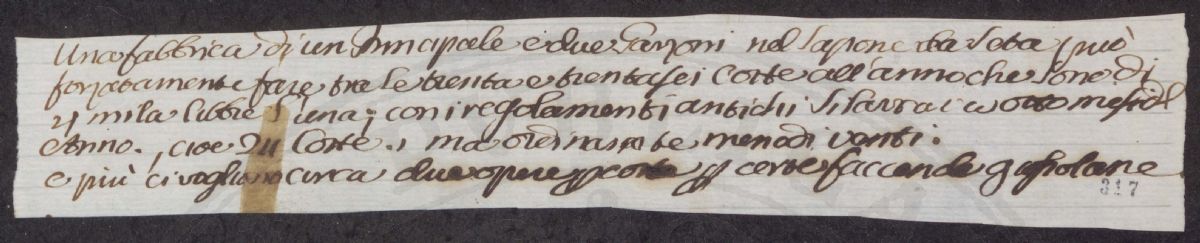 Una fabbrica di un Principale e due Garzoni nel Sapone da Seta può
forzatamente fare tra le trenta e trentasei Cotte all'anno che sono di
mila libbre l'una; con i regolamenti antichi si lavrava otto mesi del
Anno., cioe 24 Cotte., ma ordinariamte meno di venti.
e più ci vogliono circa due opere p cotta p certe faccende
317